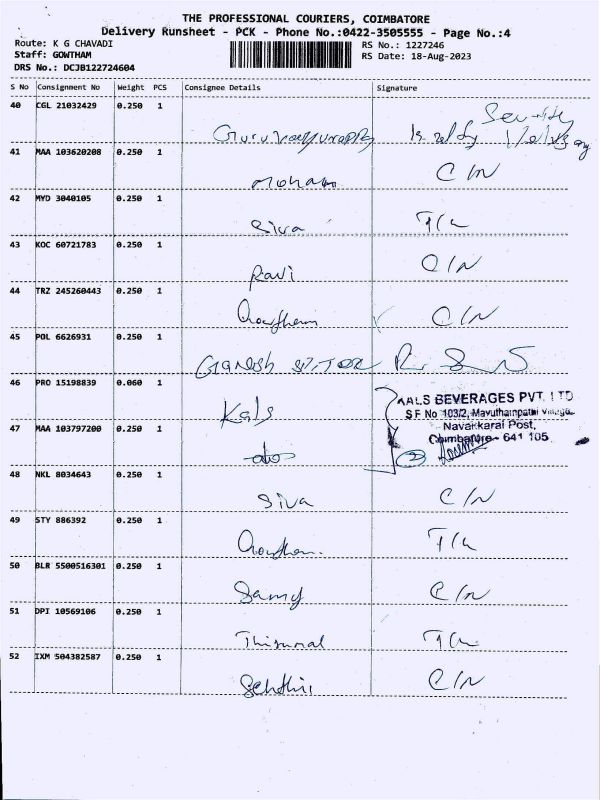 THE PROFESSIONAL COURIERS, COIMBATORE
Delivery Runsheet - PCK - Phone No.:0422-3505555 - Page No.:4
Route: K G CHAVADI
Staff: GOWTHAM
DRS No.: DCJB122724604
RS No.: 1227246
RS Date: 18-Aug-2023
S No Consignment No Weight PCS Consignee Details Signature
40 CGL 21032429 0.250 1
41 MAA 103620208 0.250 1 Mohan C/N
42 MYD 3040105 0.250 1 Siva T/L
43 KOC 60721783 0.250 1 Ravi C/N
44 TRZ 245260443 0.250 1 C/N
45 POL 6626931 0.250 1 GANESH
46 PRO 15198839 0.060 1 Kals
KALS BEVERAGES PVT. LTD
S F No 103/2, Mavuthampathi Village
Navakkarai Post,
Coimbatore - 641 105
47 MAA 103797200 0.250 1 2
48 NKL 8034643 0.250 1 Siva C/N
49 STY 886392 0.250 1 T/L
50 BLR 5500516301 0.250 1 Samy C/N
51 DPI 10569106 0.250 1 Thirumal T/L
52 IXM 504382587 0.250 1 Senthil C/N